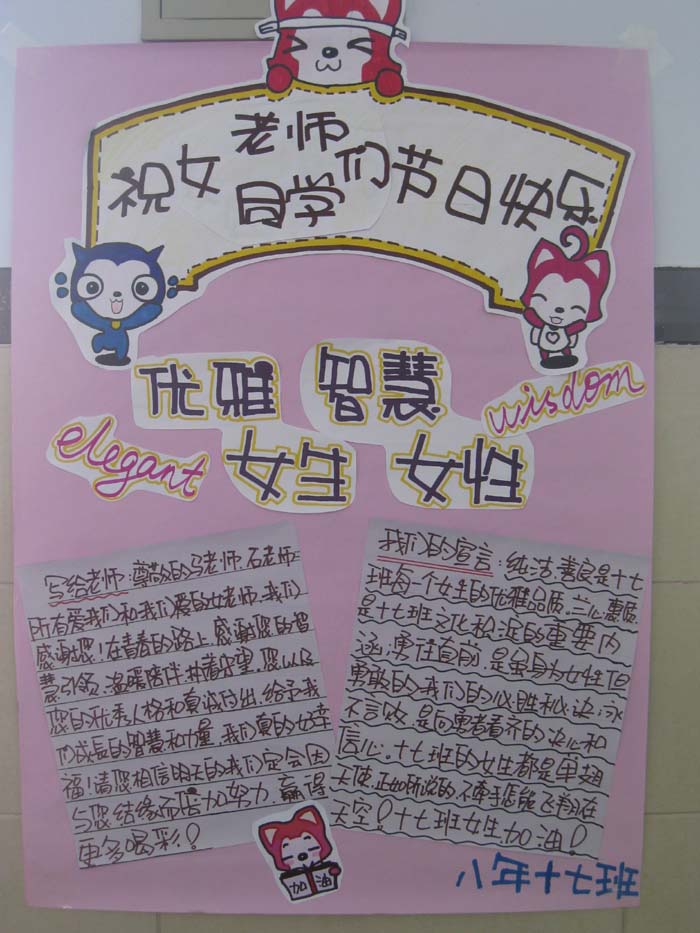 祝女老师
同学们节日快乐
优雅 智慧
wisdom
elegant
女生 女性
写给老师：尊敬的马老师、石老师
所有爱我们和我们爱的女老师，我们
感谢您！在青春的路上，感谢您的智
慧引领，温暖陪伴，并肩守望，您以
您的优秀人格和真诚付出，给予我
们成长的智慧和力量，我们真的好幸
福！请您相信明天的我们定会因
与您结缘而倍加努力，赢得
更多喝彩！
我们的宣言：纯洁、善良是十七
班每一个女生的优雅品质。兰心惠质
是十七班文化积淀的重要内
涵；勇往直前，是虽身为女性但
勇敢的我们的心；胜利必决，永
不言败，是向勇者看齐的决心和
信心。十七班的女生都是单翅
天使，正如所说的，不牵手怎能飞翔在
天空！十七班女生加油！
加油
八年十七班